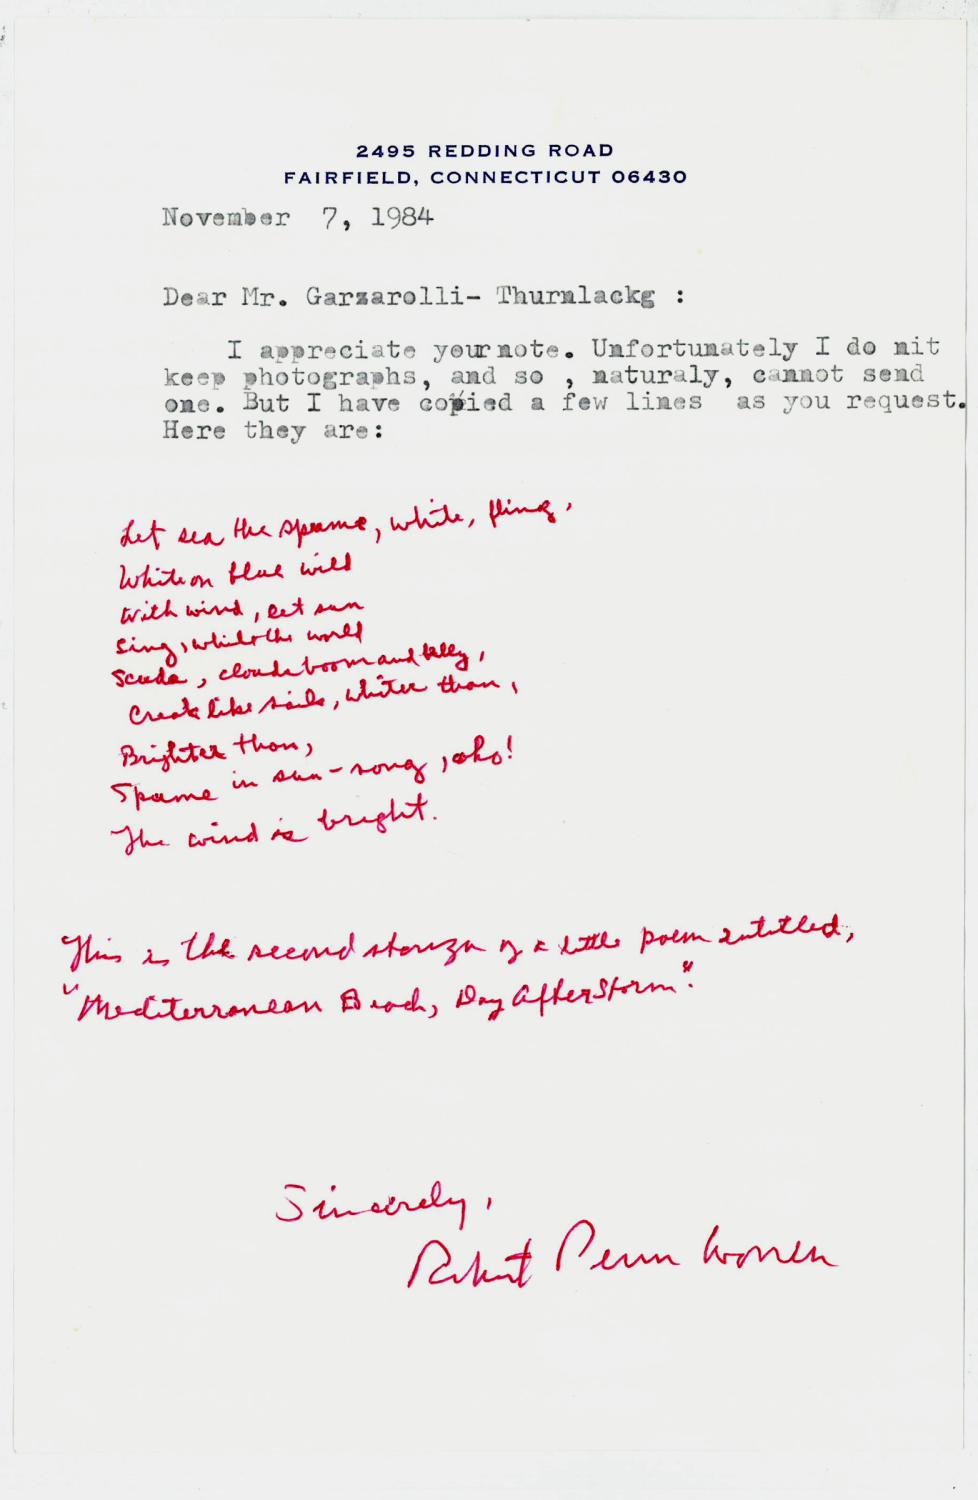 2495 REDDING ROAD
FAIRFIELD, CONNECTICUT 06430
November 7, 1984
Dear Mr. Garzarolli- Thurnlackg :
I appreciate your note. Unfortunately I do nit
keep photographs, and so , naturaly, cannot send
one. But I have copied a few lines as you request.
Here they are:
Let sea the spume, white, fling,
White on blue wild
With wind, let sun
Sing, while the world
Scuds, clouds boom and belly,
Creak like sails, whiter than,
Brighter than,
Spume in sun-song, oho!
The wind is bright.
This is the second stanza of a little poem entitled,
"Mediterranean Beach, Day After Storm".
Sincerely,
Robert Penn Warren